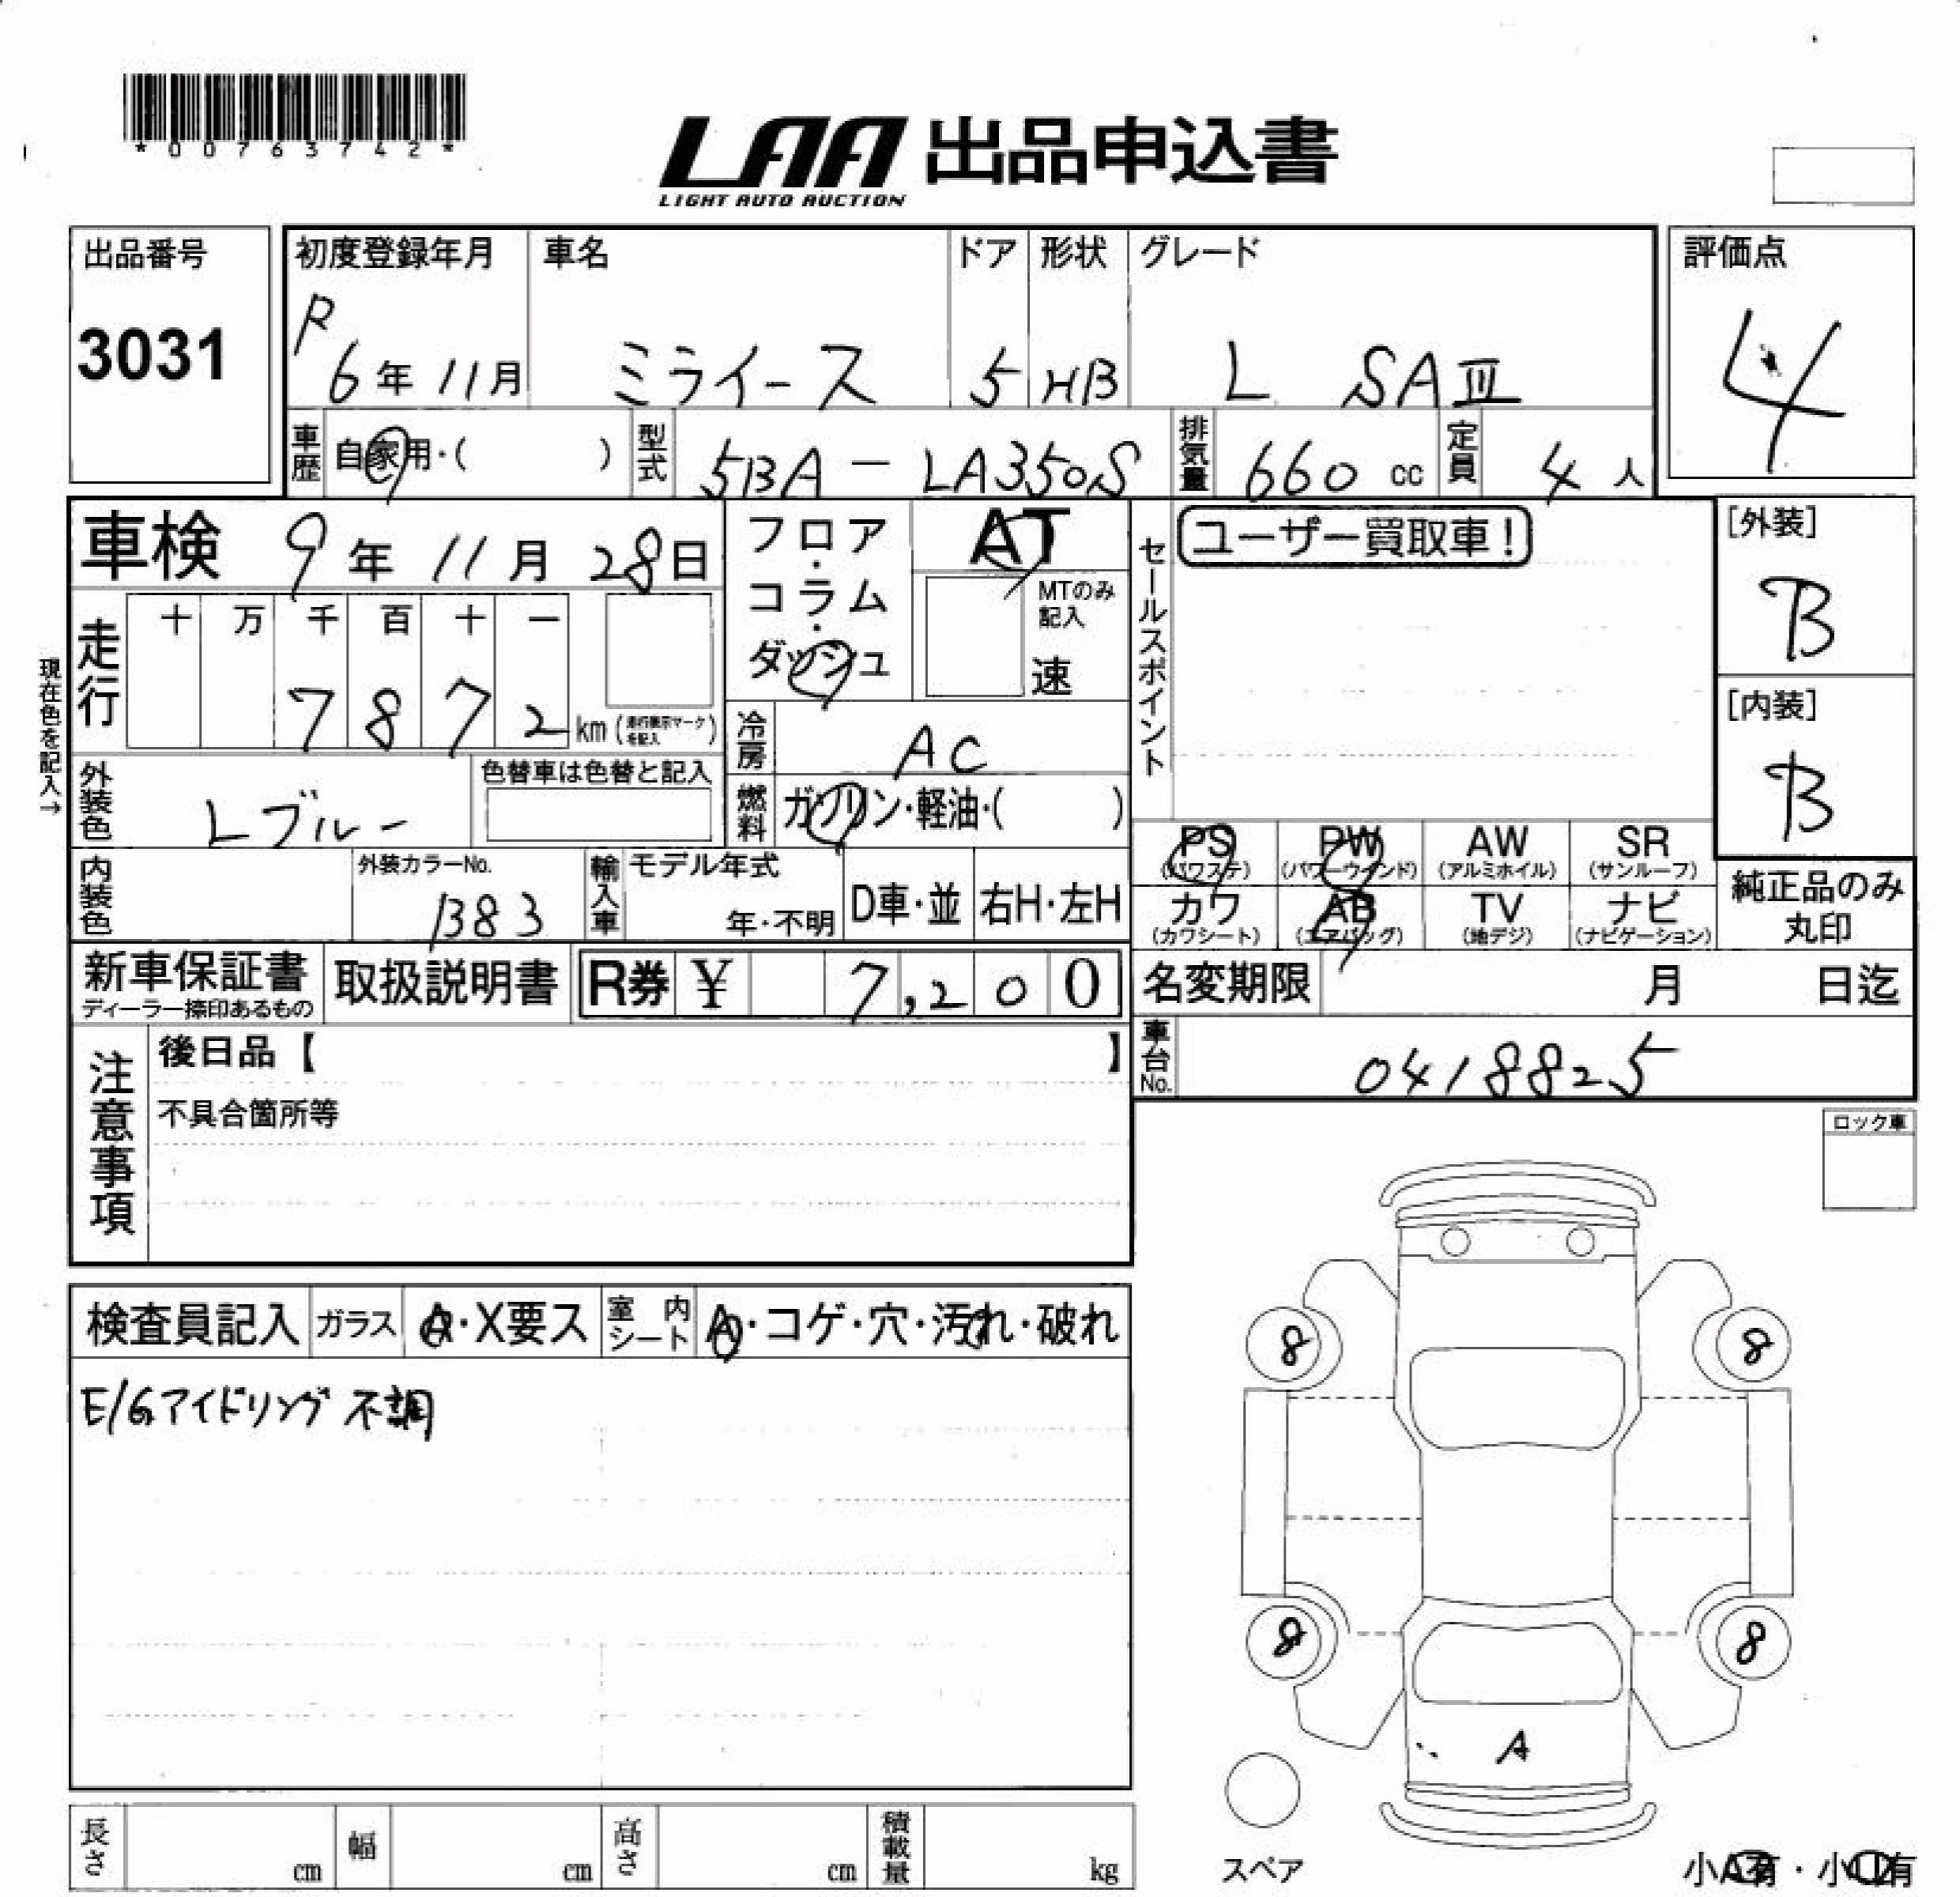 *00763742*
LAA 出品申込書
LIGHT AUTO AUCTION
出品番号
3031
初度登録年月
R
6年 11月
車名
ミライース
ドア
5
形状
HB
グレード
L SAⅢ
評価点
4
車歴 自家用・( )
型式 5BA-LA350S
排気量 660 cc
定員 4人
車検 9年 11月 28日
フロア・コラム・ダッシュ
AT
MTのみ記入
速
セールスポイント
ユーザー買取車!
[外装]
B
[内装]
B
現在色を記入→
走行
十 万 千 百 十 一
7 8 7 2 km (走行表示マークを記入)
冷房 AC
外装色 Lブルー
色替車は色替と記入
燃料 ガソリン・軽油・( )
PS (パワステ)
PW (パワーウインド)
AW (アルミホイル)
SR (サンルーフ)
カワ (カワシート)
AB (エアバッグ)
TV (地デジ)
ナビ (ナビゲーション)
純正品のみ丸印
内装色
外装カラーNo.
B83
輸入車
モデル年式
年・不明
D車・並
右H・左H
新車保証書
ディーラー捺印あるもの
取扱説明書
R券 ¥ 7,200
名変期限 月 日迄
車台No. 0418825
注意事項
後日品【 】
不具合箇所等
ロック車
検査員記入
ガラス A・X要ス
室内シート A・コゲ・穴・汚れ・破れ
E/Gアイドリング不調
8 8
8 8
A
スペア
長さ cm
幅 cm
高さ cm
積載量 kg
小A有・小凹有